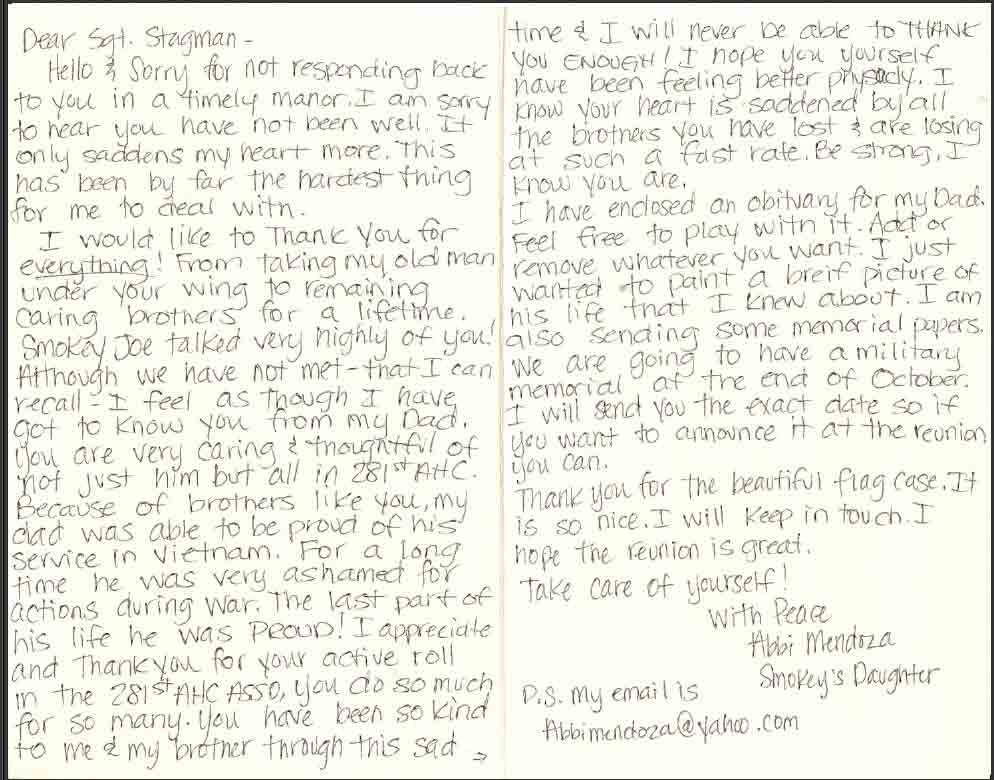 Dear Sgt. Stagman -
Hello & Sorry for not responding back
to you in a timely manor. I am sorry
to hear you have not been well. It
only saddens my heart more. This
has been by far the hardest thing
for me to deal with.
I would like to Thank You for
everything! From taking my old man
under your wing to remaining
caring brothers for a lifetime.
Smokey Joe talked very highly of you!
Although we have not met - that I can
recall - I feel as though I have
got to know you from my Dad.
You are very caring & thoughtful of
not just him but all in 281st AHC.
Because of brothers like you, my
dad was able to be proud of his
service in Vietnam. For a long
time he was very ashamed for
actions during war. The last part of
his life he was PROUD! I appreciate
and Thank you for your active roll
in the 281st AHC ASSO, you do so much
for so many. You have been so kind
to me & my brother through this sad →
time & I will never be able to THANK
YOU ENOUGH! I hope you yourself
have been feeling better physically. I
know your heart is saddened by all
the brothers you have lost & are losing
at such a fast rate. Be strong, I
know you are.
I have enclosed an obituary for my Dad.
Feel free to play with it. Add or
remove whatever you want. I just
wanted to paint a breif picture of
his life that I knew about. I am
also sending some memorial papers.
We are going to have a military
memorial at the end of October.
I will send you the exact date so if
you want to announce it at the reunion
you can.
Thank you for the beautiful flag case. It
is so nice. I will keep in touch. I
hope the reunion is great.
Take care of yourself!
With Peace
Abbi Mendoza
Smokey's Daughter
P.S. My email is
Abbimendoza@yahoo.com